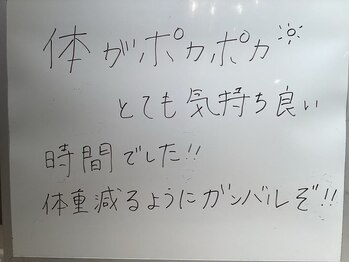 体がポカポカ
とても気持ち良い
時間でした!!
体重減るようにガンバルぞ!!